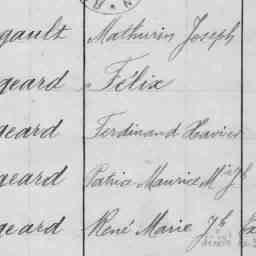 gault Mathurin Joseph
geard Félix
geard Ferdinand Xavier
geard Patrice Maurice Mie Jh
geard René Marie Jh